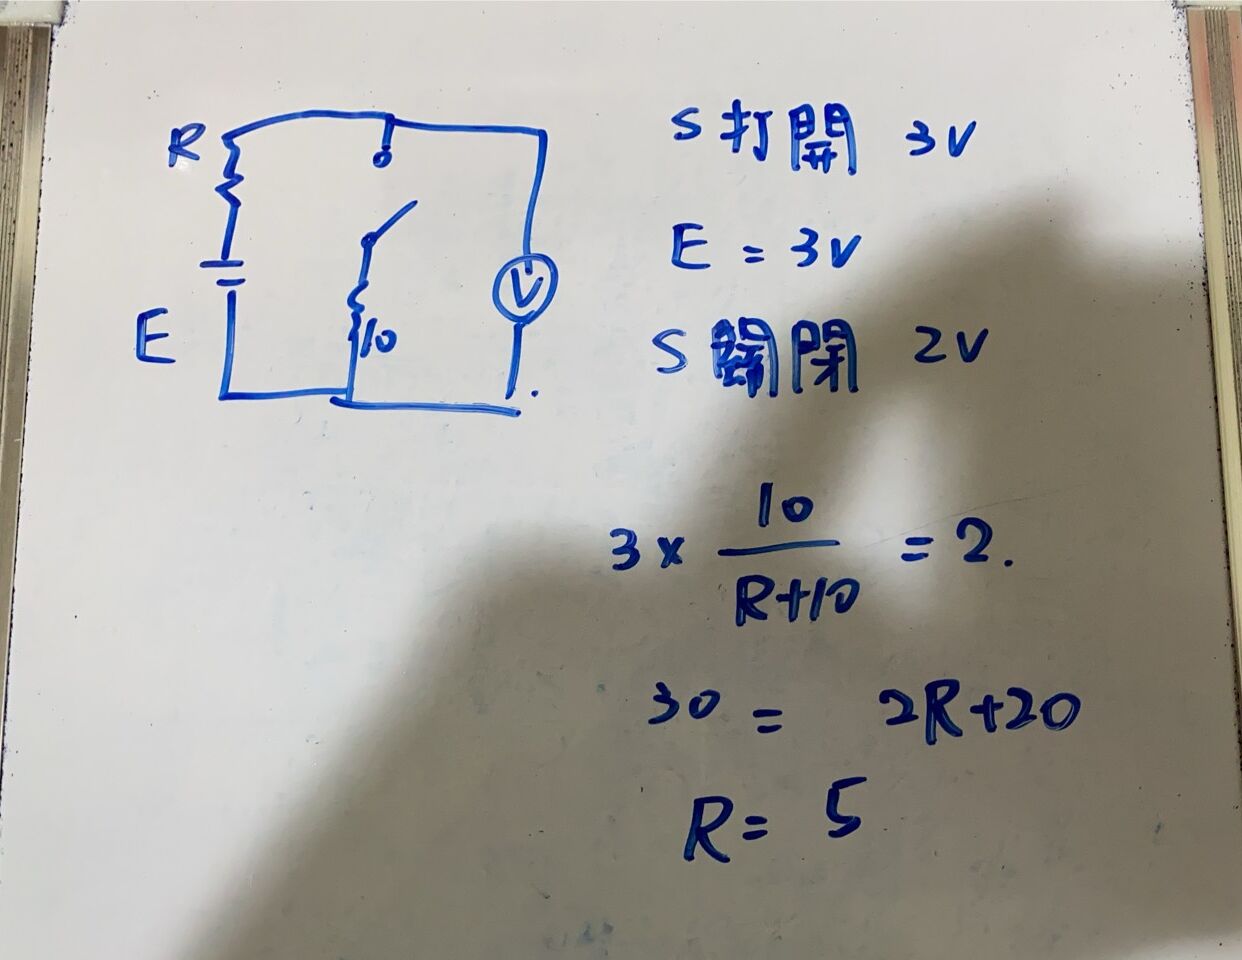 R
E
10
V
S打開 3V
E = 3V
S關閉 2V
3 × 10/(R+10) = 2.
30 = 2R+20
R = 5